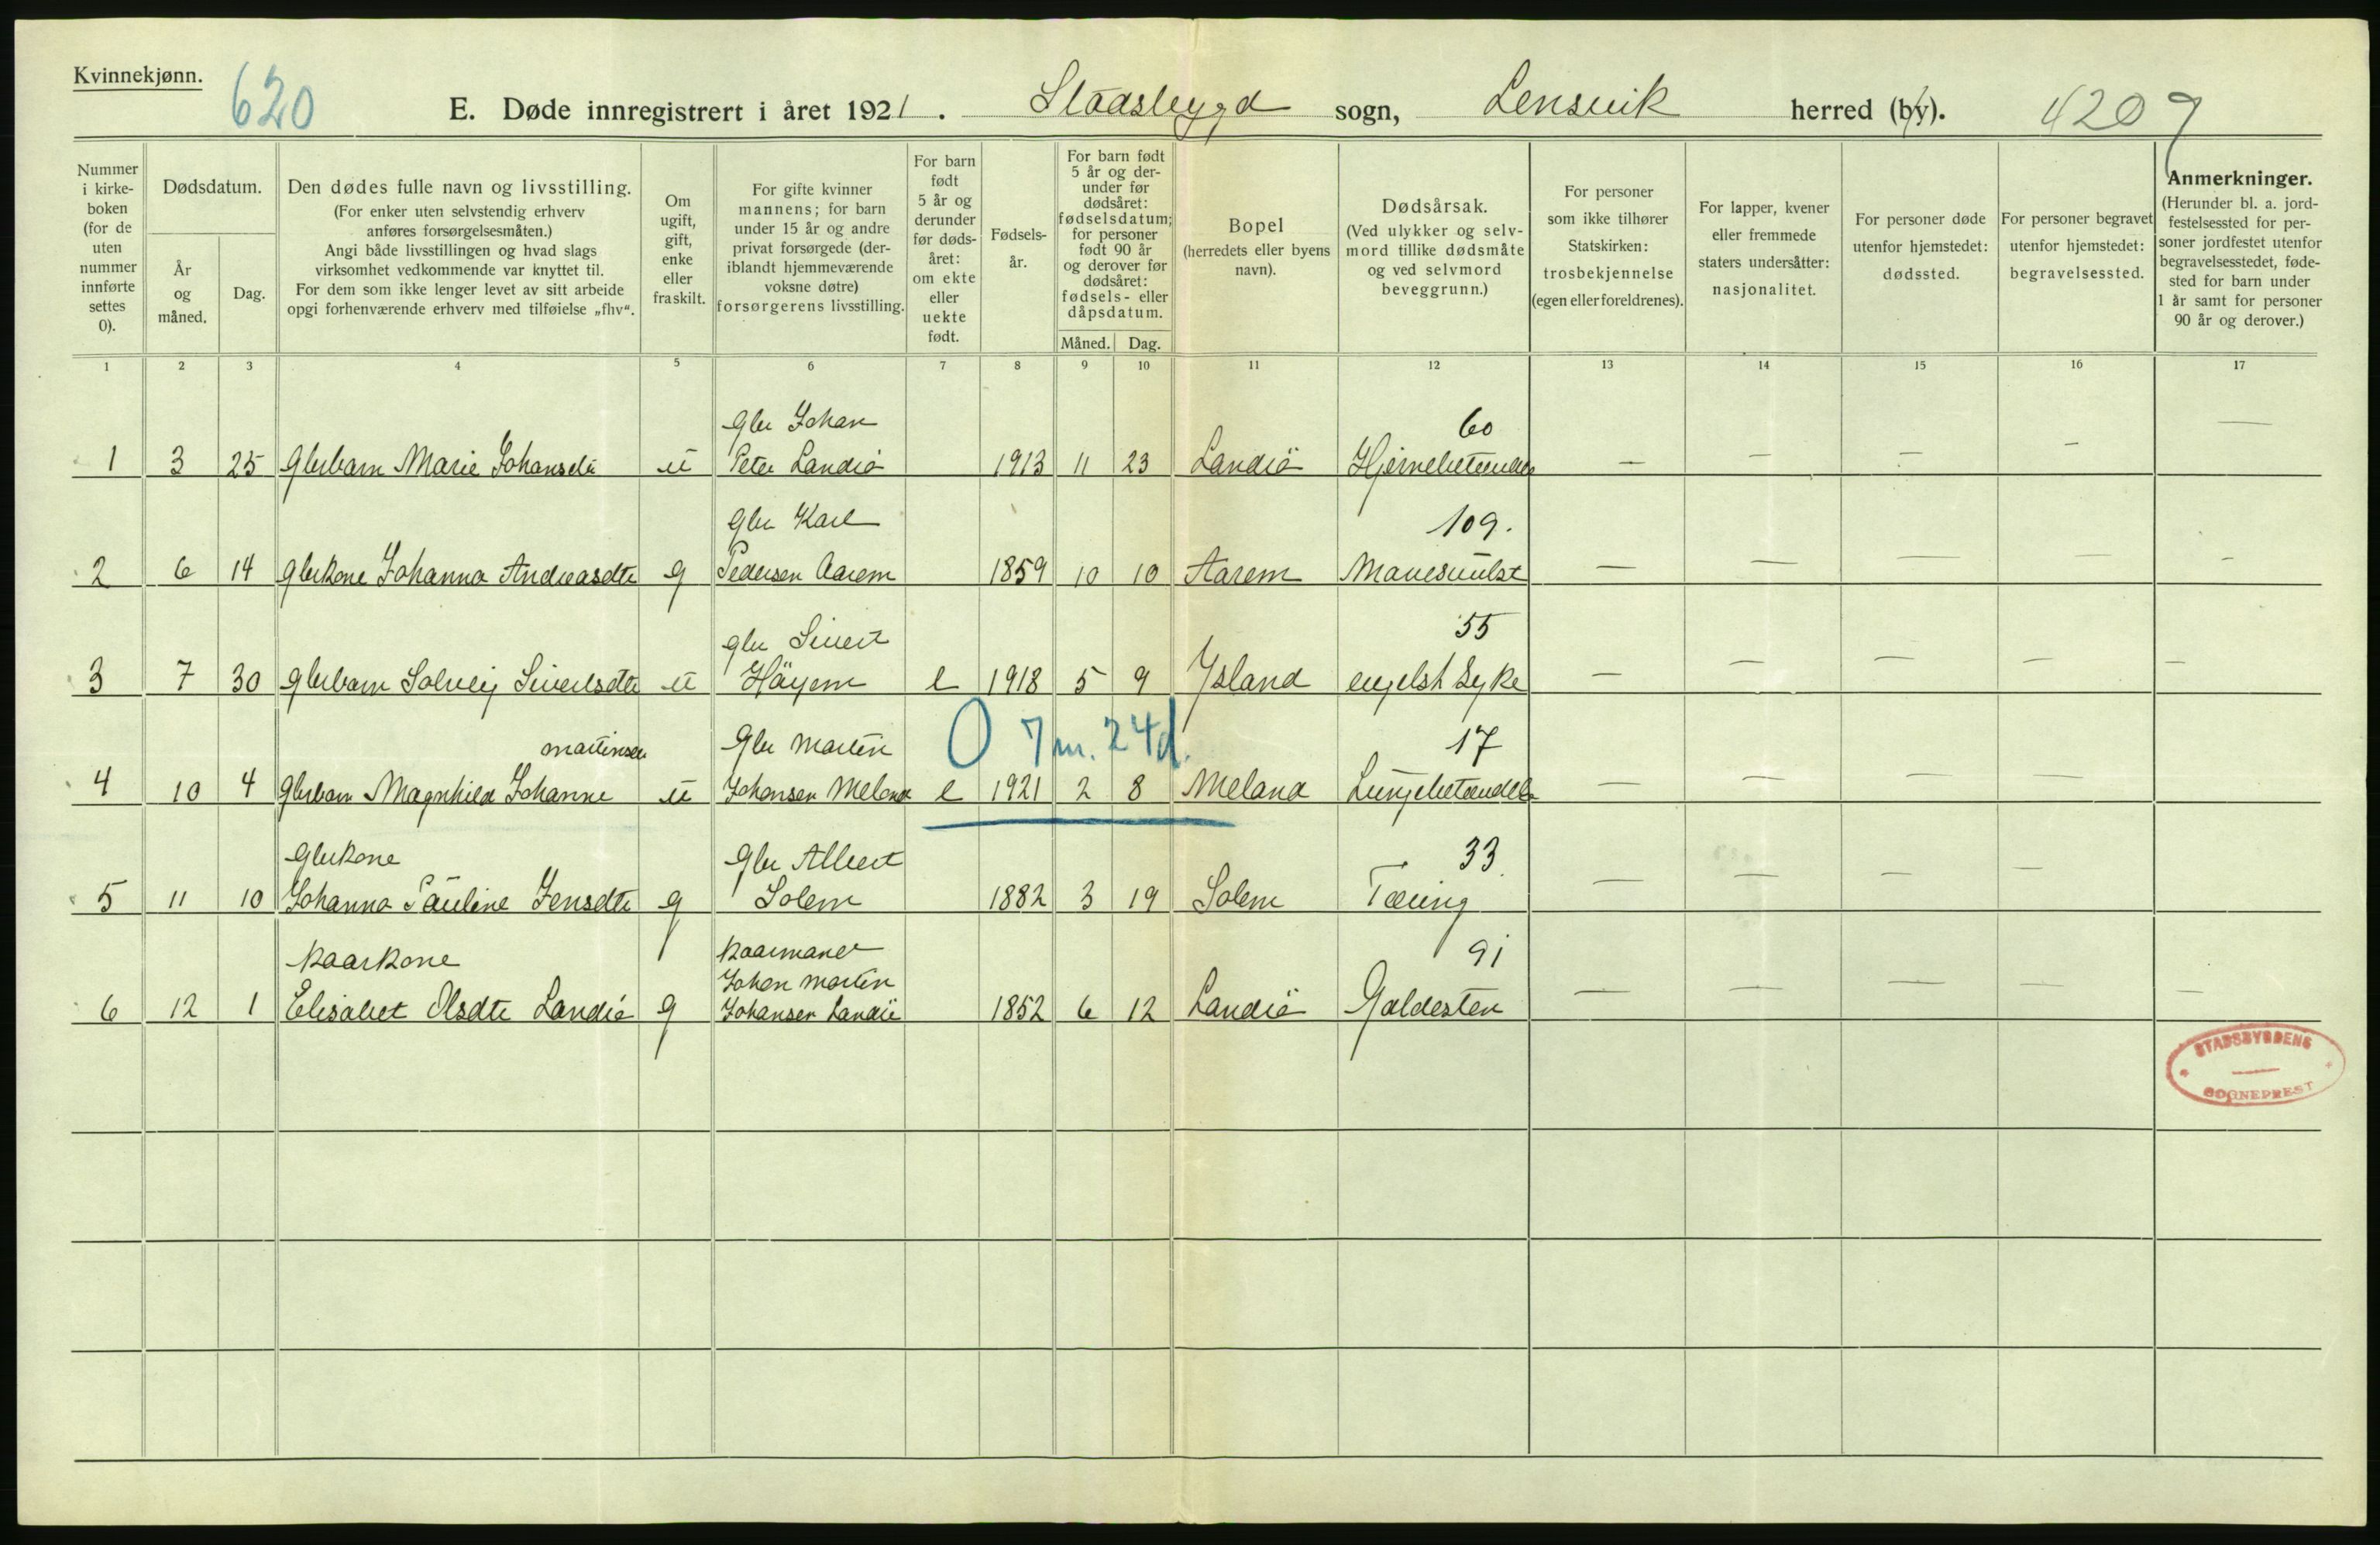 Kvinnekjønn.
620
E. Døde innregistrert i året 1921. Stadsbygd sogn, Lensvik herred (by). 4209
Nummer i kirke-boken (for de uten nummer innførte settes 0).
Dødsdatum.
År og måned.
Dag.
Den dødes fulle navn og livsstilling.
(For enker uten selvstendig erhverv anføres forsørgelsesmåten.)
Angi både livsstillingen og hvad slags virksomhet vedkommende var knyttet til.
For dem som ikke lenger levet av sitt arbeide opgi forhenværende erhverv med tilføielse „fhv“.
Om ugift, gift, enke eller fraskilt.
For gifte kvinner mannens; for barn under 15 år og andre privat forsørgede (deriblandt hjemmeværende voksne døtre) forsørgerens livsstilling.
For barn født 5 år og derunder før dødsåret: om ekte eller uekte født.
Fødsels-år.
For barn født 5 år og derunder før dødsåret: fødselsdatum; for personer født 90 år og derover før dødsåret: fødsels- eller dåpsdatum.
Måned. Dag.
Bopel (herredets eller byens navn).
Dødsårsak.
(Ved ulykker og selvmord tillike dødsmåte og ved selvmord beveggrunn.)
For personer som ikke tilhører Statskirken: trosbekjennelse (egen eller foreldrenes).
For lapper, kvener eller fremmede staters undersåtter: nasjonalitet.
For personer døde utenfor hjemstedet: dødssted.
For personer begravet utenfor hjemstedet: begravelsessted.
Anmerkninger.
(Herunder bl. a. jordfestelsessted for personer jordfestet utenfor begravelsesstedet, fødested for barn under 1 år samt for personer 90 år og derover.)
1 2 3 4 5 6 7 8 9 10 11 12 13 14 15 16 17
Gbr Johan 60
1 3 25 Gbrbarn Marie Johansdtr u Peter Landrö 1913 11 23 Landrö Hjernebetændelse — — — — —
Gbr Karl 109.
2 6 14 Gbrkone Johanna Andreasdtr g Pedersen Aarem 1859 10 10 Aarem Mavesvulst — — — — -
gbr Sivert 55
3 7 30 gbrbarn Solveig Sivertsdtr u Häyem e 1918 5 9 Ysland engelsk syke — — — — —
martinsen Gbr Martin 0 7m. 24d. 17
4 10 4 Gbrbarn Magnhild Johanne u Johansen Meland e 1921 2 8 Meland Lungebetændelse — — — —
Gbrkone Gbr Albert 33
5 11 10 Johanna Pauline Jensdtr g Solem 1882 3 19 Solem Tæring — — — —
Kaarkone Kaarmand 91
Johan Martin
6 12 1 Elisabet Olsdtr Landrö g Johansen Landrö 1852 6 12 Landrö Galdesten — — — — —
STADSBYGDENS
SOGNEPREST